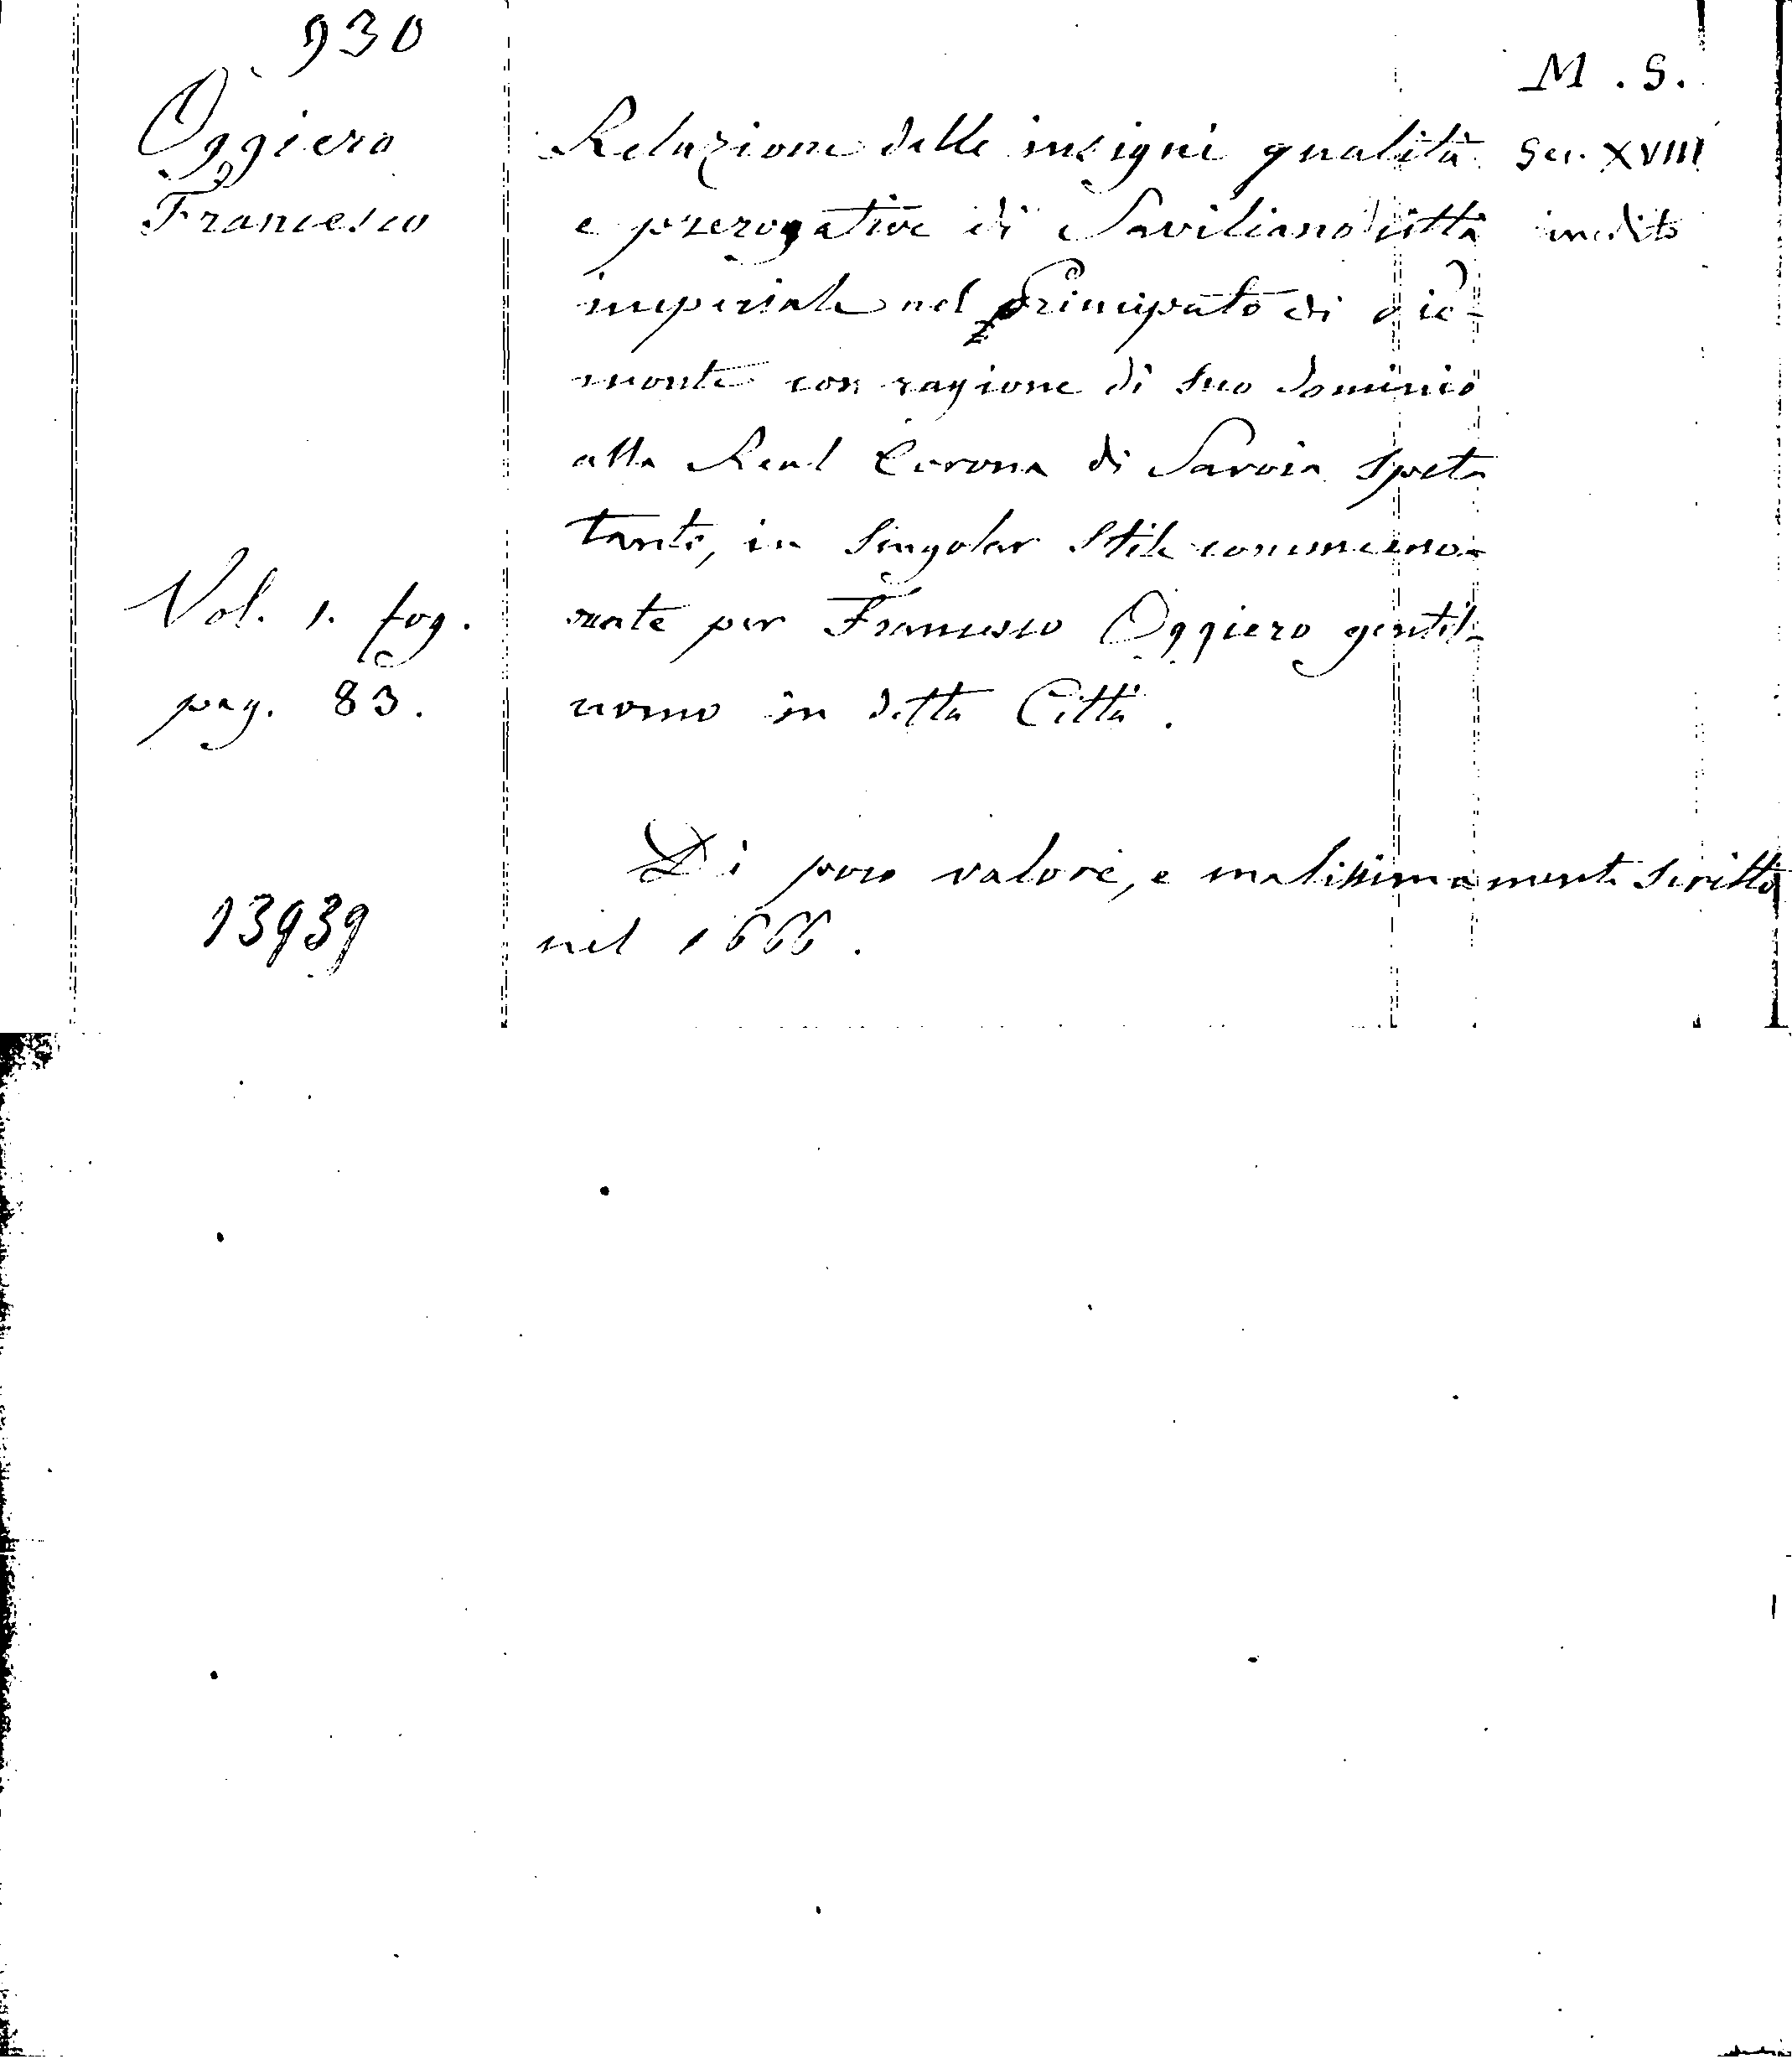 930
Oggiero
Francesco
Vol. 1. fog.
pag. 83.
13939
Relazione delle insigni qualità
e prerogative di Saviliano città
imperiale nel Principato di Pie-
monte con ragione di suo dominio
alla Real Corona di Savoia spet-
tante, in singolar stile commemo-
rate per Francesco Oggiero gentil-
uomo in detta Città.
Di poco valore, e malissimamente scritto
nel 1666.
M. S.
Sec. XVIII
inedito